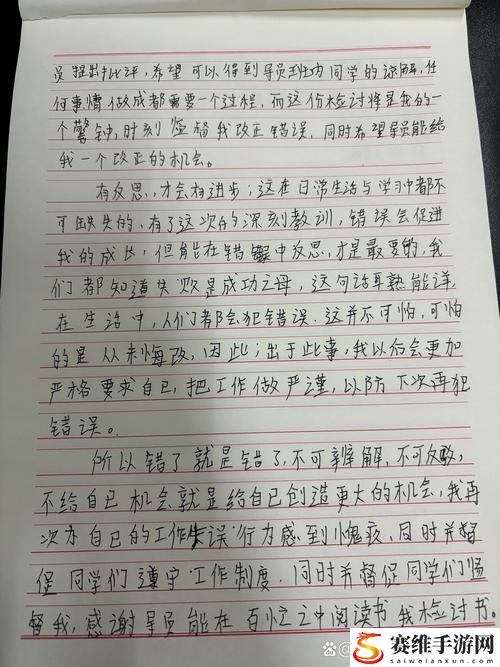 员提出批评，希望可以得到导员班内同学的谅解，任
何事情做成都需要一个过程，而这份检讨将是我的一
个警钟，时刻监督我改正错误，同时希望导员能给
我一个改正的机会。
有反思，才会有进步；这在日常生活与学习中都不
可缺失的，有了这次的深刻教训，错误会促进
我的成长，但能在错误中反思，才是最要的，我
们都知道失败是成功之母，这句话耳熟能详
在生活中，人们都会犯错误．这并不可怕，可怕
的是从未悔改，因此；出于此事，我以后会更加
严格要求自己，把工作做严谨，以防下次再犯
错误。
所以错了就是错了，不可辨解，不可反驳，
不给自己机会就是给自己创造更大的机会，我再
次为自己的工作失误行为感到愧疚，同时并督
促同学们遵守工作制度．同时并督促同学们监
督我，感谢导员能在百忙之中阅读书我检讨书。
赛维手游网
www.saiweilanxun.com